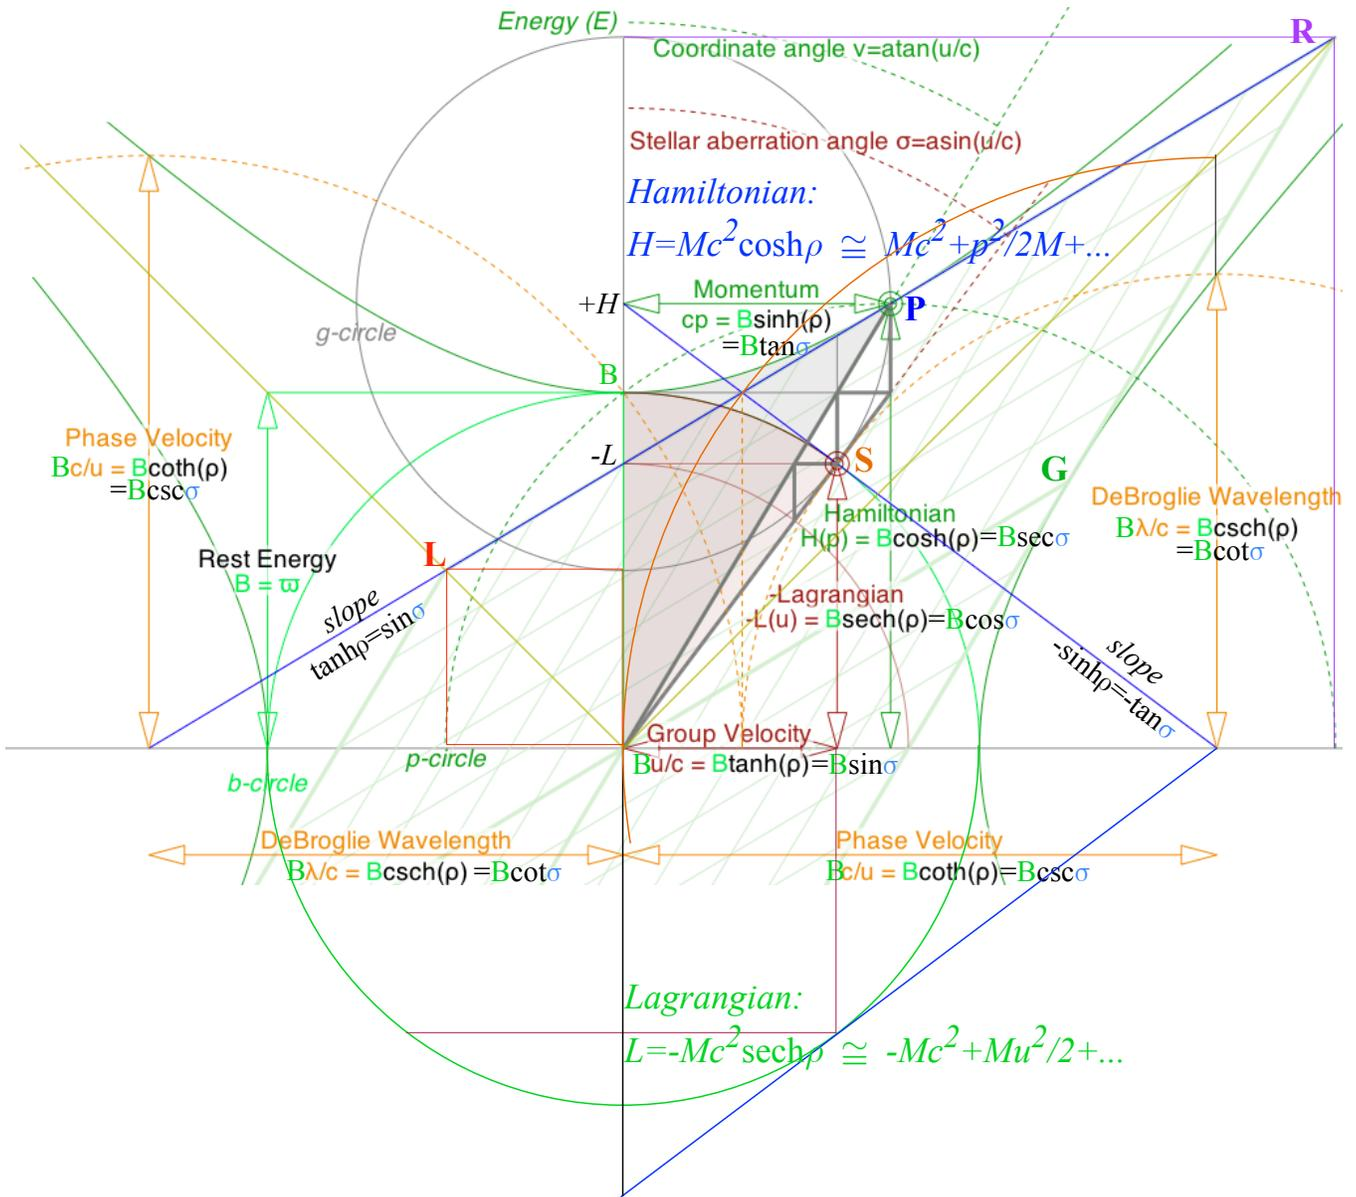 Energy (E)
R
Coordinate angle ν=atan(u/c)
Stellar aberration angle σ=asin(u/c)
Hamiltonian:
H=Mc²coshρ ≅ Mc²+p²/2M+...
Momentum
+H
P
cp = Bsinh(ρ)
=Btanσ
g-circle
B
Phase Velocity
Bc/u = Bcoth(ρ)
=Bcscσ
-L
S
G
DeBroglie Wavelength
Bλ/c = Bcsch(ρ)
=Bcotσ
Hamiltonian
H(p) = Bcosh(ρ)=Bsecσ
Rest Energy
B = ϖ
L
-Lagrangian
-L(u) = Bsech(ρ)=Bcosσ
slope
tanhρ=sinσ
slope
-sinhρ=-tanσ
Group Velocity
Bu/c = Btanh(ρ)=Bsinσ
p-circle
b-circle
DeBroglie Wavelength
Bλ/c = Bcsch(ρ) =Bcotσ
Phase Velocity
Bc/u = Bcoth(ρ)=Bcscσ
Lagrangian:
L=-Mc²sechρ ≅ -Mc²+Mu²/2+...